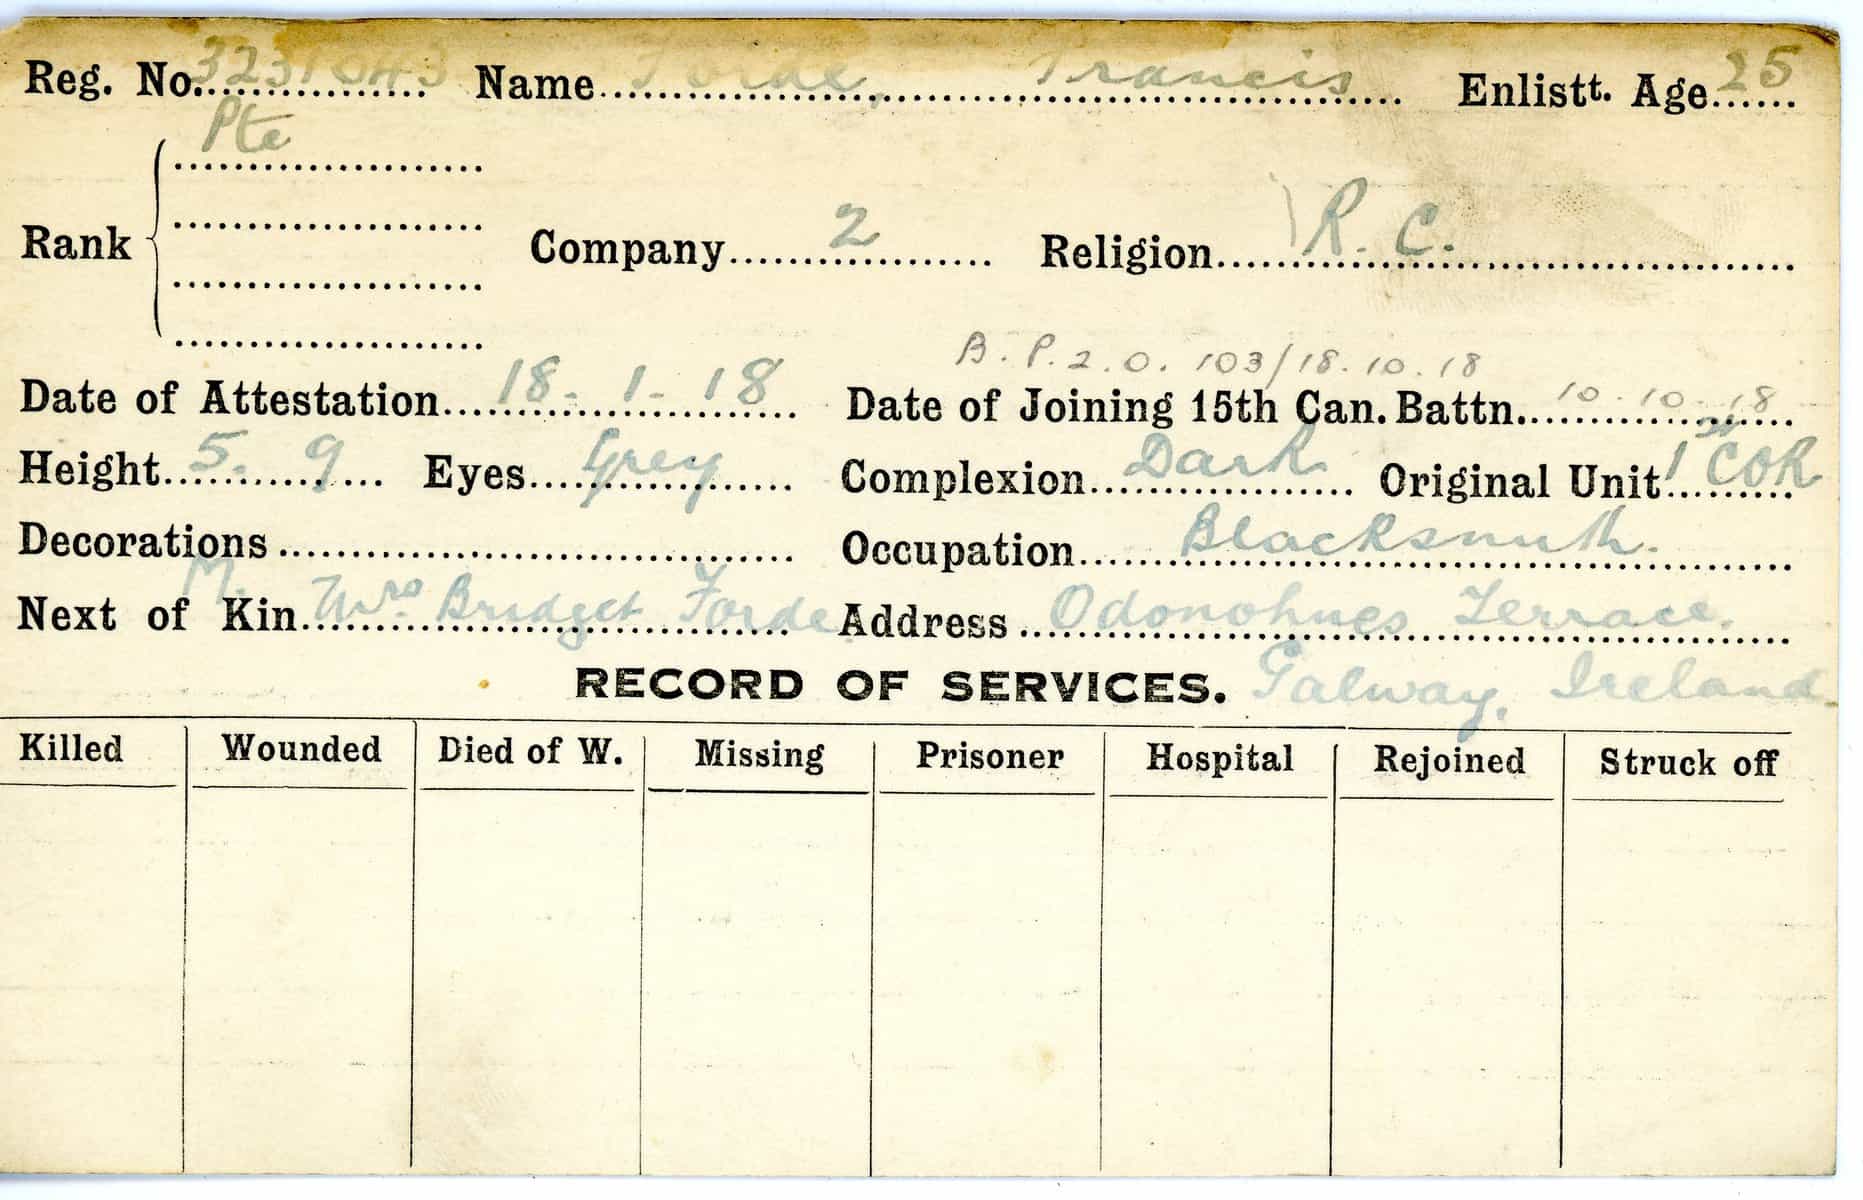 Reg. No. Name Forde, Francis Enlistt. Age 25
Pte
Rank Company 2 Religion R. C.
B. P. 2. O. 103/18.10.18
Date of Attestation 18-1-18 Date of Joining 15th Can. Battn. 10.10.18
Height 5. 9 Eyes Grey Complexion Dark Original Unit 1st COR
Decorations Occupation Blacksmith.
M.
Next of Kin Mrs. Bridget Forde Address Odonohues Terrace.
RECORD OF SERVICES. Galway, Ireland
Killed Wounded Died of W. Missing Prisoner Hospital Rejoined Struck off